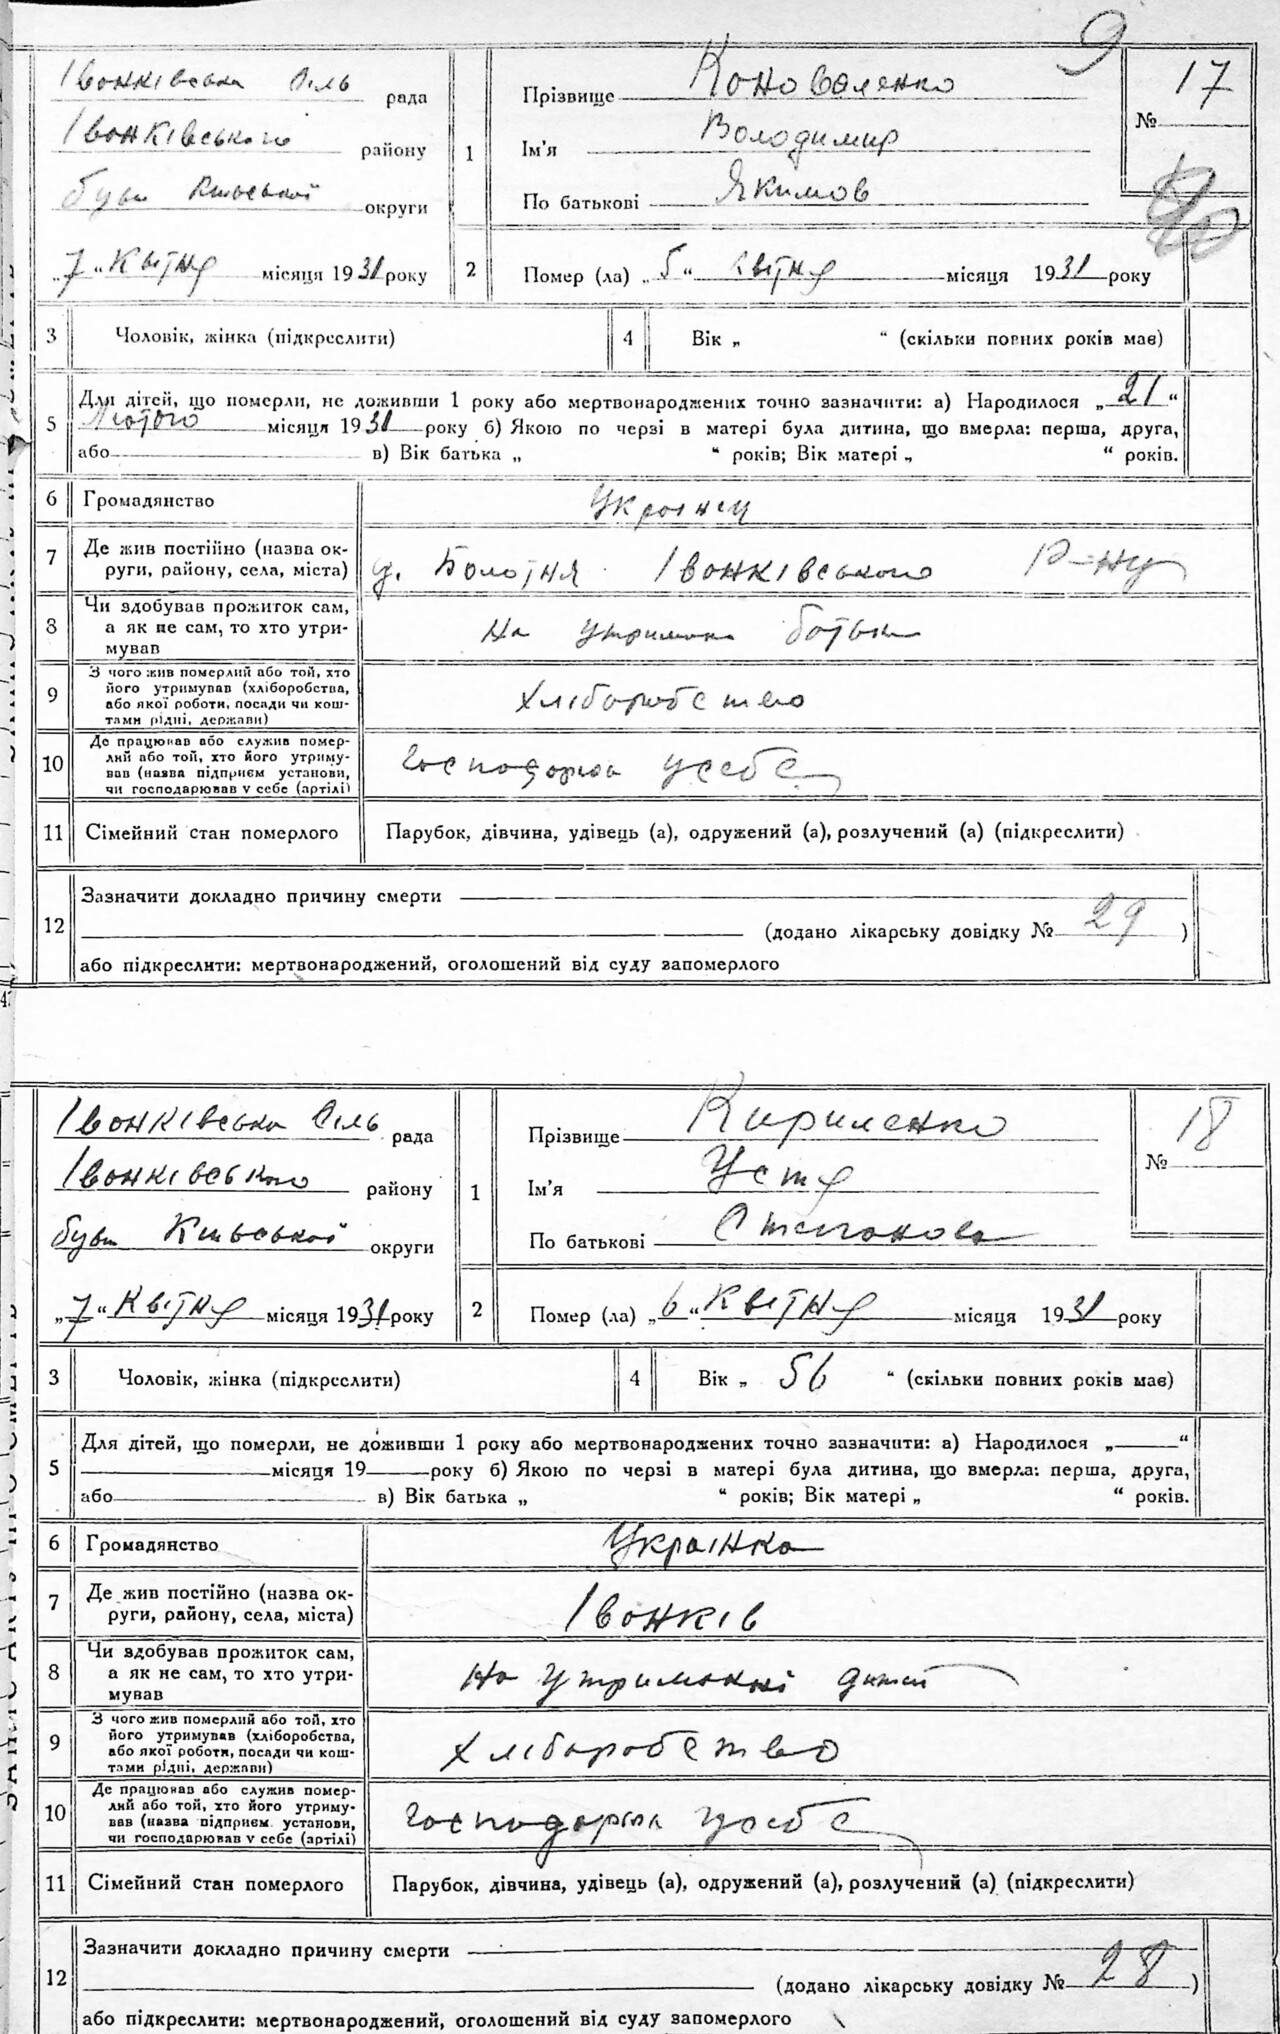 9
Іванківська Сіль рада
Іванківського району
бувш Київської округи
„7“ Квітня місяця 1931 року
1
Прізвище Коноваленко
Ім'я Володимир
По батькові Якимов
№ 17
2 Помер (ла) „5“ Квітня місяця 1931 року
3 Чоловік, жінка (підкреслити)
4 Вік „ “ (скільки повних років має)
5 Для дітей, що померли, не доживши 1 року або мертвонароджених точно зазначити: а) Народилося „21“
Лютого місяця 1931 року б) Якою по черзі в матері була дитина, що вмерла: перша, друга,
або в) Вік батька „ “ років; Вік матері „ “ років.
6 Громадянство Українец
7 Де жив постійно (назва ок-
руги, району, села, міста)
Болотня Іванківського Р-ну
8 Чи здобував прожиток сам,
а як не сам, то хто утри-
мував
На утриман батьк
9 З чого жив померлий або той, хто
його утримував (хліборобства,
або якої роботи, посади чи кош-
тами рідні, держави)
Хліборобство
10 Де працював або служив помер-
лий або той, хто його утриму-
вав (назва підприєм установи,
чи господарював у себе (артілі)
Господарюв усебе
11 Сімейний стан померлого Парубок, дівчина, удівець (а), одружений (а), розлучений (а) (підкреслити)
12 Зазначити докладно причину смерти
(додано лікарську довідку № 29 )
або підкреслити: мертвонароджений, оголошений від суду запомерлого
Іванківська Сіль рада
Іванківського району
бувш Київської округи
„7“ Квітня місяця 1931 року
1
Прізвище Кириленко
Ім'я Устя
По батькові Степанова
№ 18
2 Помер (ла) „6“ Квітня місяця 1931 року
3 Чоловік, жінка (підкреслити)
4 Вік „ 56 “ (скільки повних років має)
5 Для дітей, що померли, не доживши 1 року або мертвонароджених точно зазначити: а) Народилося „ “
місяця 19 року б) Якою по черзі в матері була дитина, що вмерла: перша, друга,
або в) Вік батька „ “ років; Вік матері „ “ років.
6 Громадянство Українка
7 Де жив постійно (назва ок-
руги, району, села, міста)
Іванків
8 Чи здобував прожиток сам,
а як не сам, то хто утри-
мував
На утриманні дитей
9 З чого жив померлий або той, хто
його утримував (хліборобства,
або якої роботи, посади чи кош-
тами рідні, держави)
Хліборобство
10 Де працював або служив помер-
лий або той, хто його утриму-
вав (назва підприєм. установи,
чи господарював у себе (артілі)
Господарюв усебе
11 Сімейний стан померлого Парубок, дівчина, удівець (а), одружений (а), розлучений (а) (підкреслити)
12 Зазначити докладно причину смерти
(додано лікарську довідку № 28 )
або підкреслити: мертвонароджений, оголошений від суду запомерлого